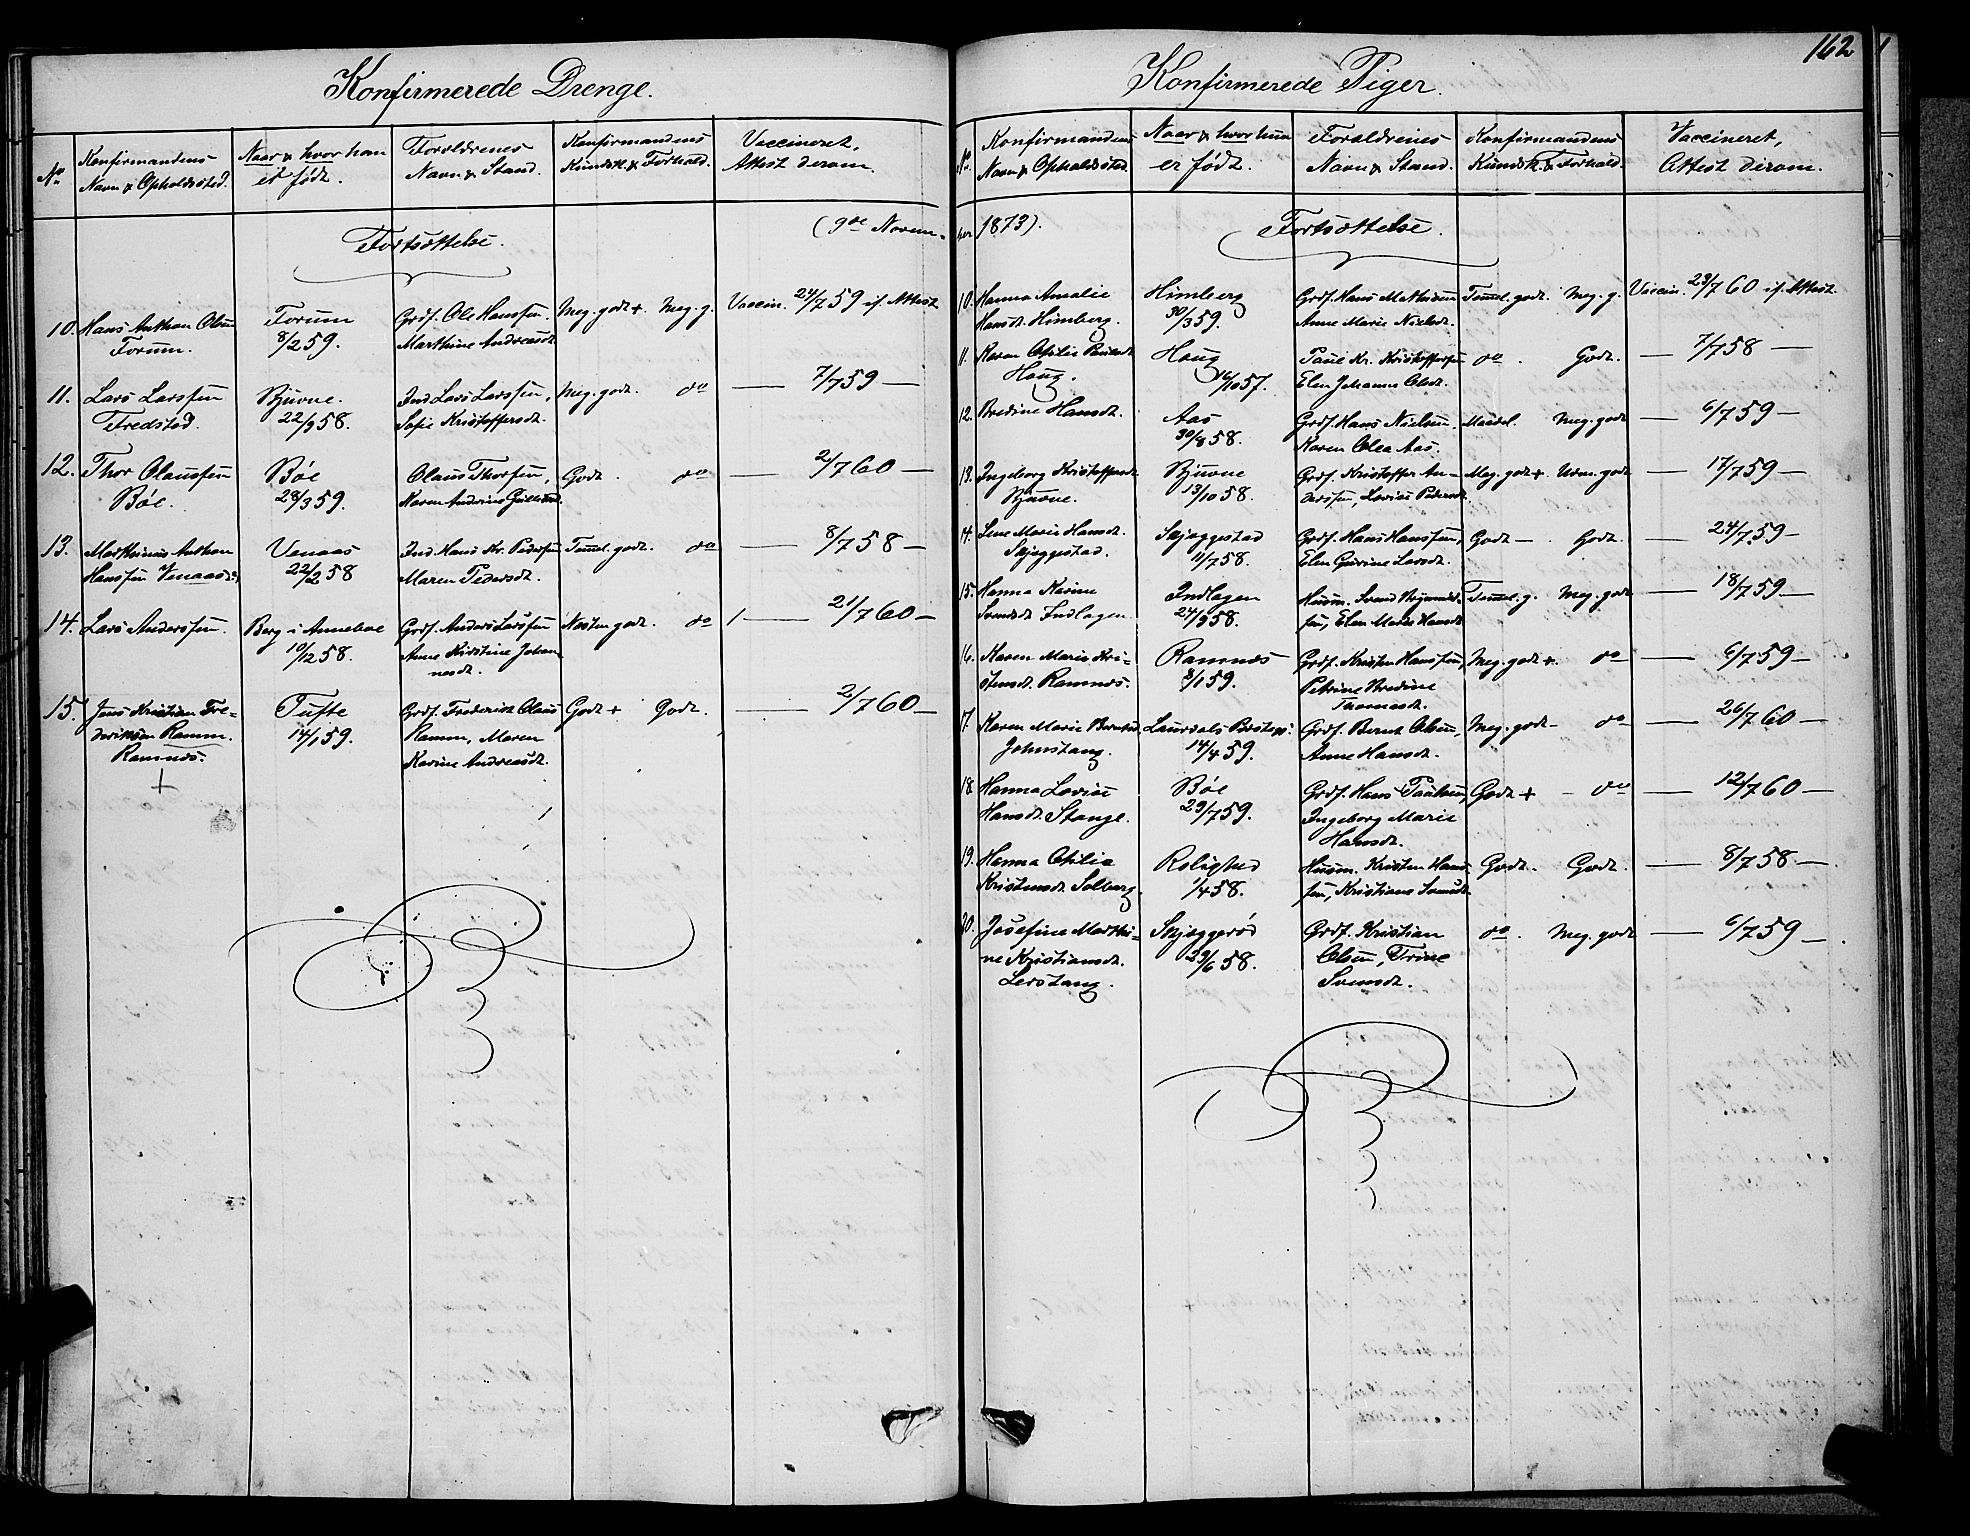 162
Konfirmerede Drenge.
No
Konfirmandens
Navn & Opholdssted.
Naar & hvor han
er født.
Forældrenes
Navn & Stand.
Konfirmandens
Kundsk. & Forhold.
Vaccineret,
Attest derom.
Fortsættelse.
(9de Novem-
10. Hans Anthon Olsen Forum 8/2 59. Grdf. Ole Hanssen, Meg. godt + Meg. g. Vaccin. 24/7 59 if. Attest
Forum. Marthine Andreasdt.
11. Lars Larssen Bjuvne. Ind. Lars Larssen, Meg. godt. do — 7/7 59 —
Fredstad. 22/9 58. Sofie Kristoffersdt.
12. Thor Olaussen Böe Olaus Thorsen, Godt. do — 2/7 60 —
Böe. 28/3 59. Karen Andrine
13. Marthinius Anthon Venaas Ind. Hans Kr. Pedersen Temmel. godt. do — 8/7 58 —
Hanssen Venaas 22/2 58 Maren Pedersdt.
14. Lars Anderssen. Berg i Anneboe Grdf. Anders Larssen Næsten godt. do — 21/7 60 —
10/12 58. Anne Kirstine Johan
nesdt.
15. Jens Kristian Fre- Tufte Grdf. Frederik Olaus Godt + Godt. — 2/7 60 —
deriksen Ramm. 14/1 59. Ramm, Maren
Ramnæs. Karine Andreasdt.
+
Konfirmerede Piger.
No
Konfirmandens
Navn & Opholdssted.
Naar & hvor hun
er født.
Forældrenes
Navn & Stand.
Konfirmandens
Kundsk. & Forhold.
Vaccineret,
Attest derom.
ber 1873).
Fortsættelse.
10. Hanna Amalie Himberg Grdf. Hans Mathisen Temmel. godt. Meg. g. Vaccin. 23/7 60 if. Attest.
Hansdt. Himberg. 30/3 59. Anne Marie Nielsdt.
11. Karen Otilie Paulsdt. Houg Paul Kr. Kristoffersen do. Godt. — 7/7 58 —
Houg. 16/10 57. Elen Johanne Olsdt.
12. Bredine Hansdt. Aas Grdf. Hans Nielsen, Maadel. Meg. godt — 6/7 59 —
30/8 58. Karen Olea Aas.
13. Ingeborg Kristoffersdt. Bjuvne Grdf. Kristoffer An- Meg. godt + Udm. godt — 17/7 59 —
Bjuvne. 13/10 58. derssen, Lovise Pedersdt.
14. Lene Marie Hansdt. Skjeggestad Grdf. Hans Hanssen, Godt — Godt. — 24/7 59 —
Skjeggestad. 11/7 58. Elen Gurine Larsdt.
15. Hanna Karine Indlagen Husm. Svend Temmel. g. Meg. godt — 18/7 59 —
Svendsdt Indlagen 24/9 58. sen, Elen Marie Hansdt.
16. Karen Marie Kri- Ramnæs Grdf. Kristen Hanssen, Meg. godt +. do — 6/7 59 —
stensdt. Ramnæs. 2/1 59. Petrine Bredine
Thomasdt.
17. Karen Marie Berntsd. Laurdals Prstegj: Grdf. Bernt Olsen, Meg. godt — do — 26/7 60 —
Johnstang. 14/4 59. Anne Hansdt.
18. Hanna Lovise Böe Grdf. Hans Paulsen, Godt + — do — 12/7 60 —
Hansdt. Stange. 29/7 59. Ingeborg Marie
Hansdt.
19. Hanna Otilia Rolighed Husm. Kristen Hans Godt. Godt. — 8/7 58 —
Kristensdt Solberg. 1/4 58. sen, Kristiane Svensdt.
20. Josefine Marthi- Skjeggerød Grdf. Kristian do. Meg. godt — 6/7 59 —
ne Kristiansdt. 29/6 58. Olsen, Trine
Lerstang. Svensdt.